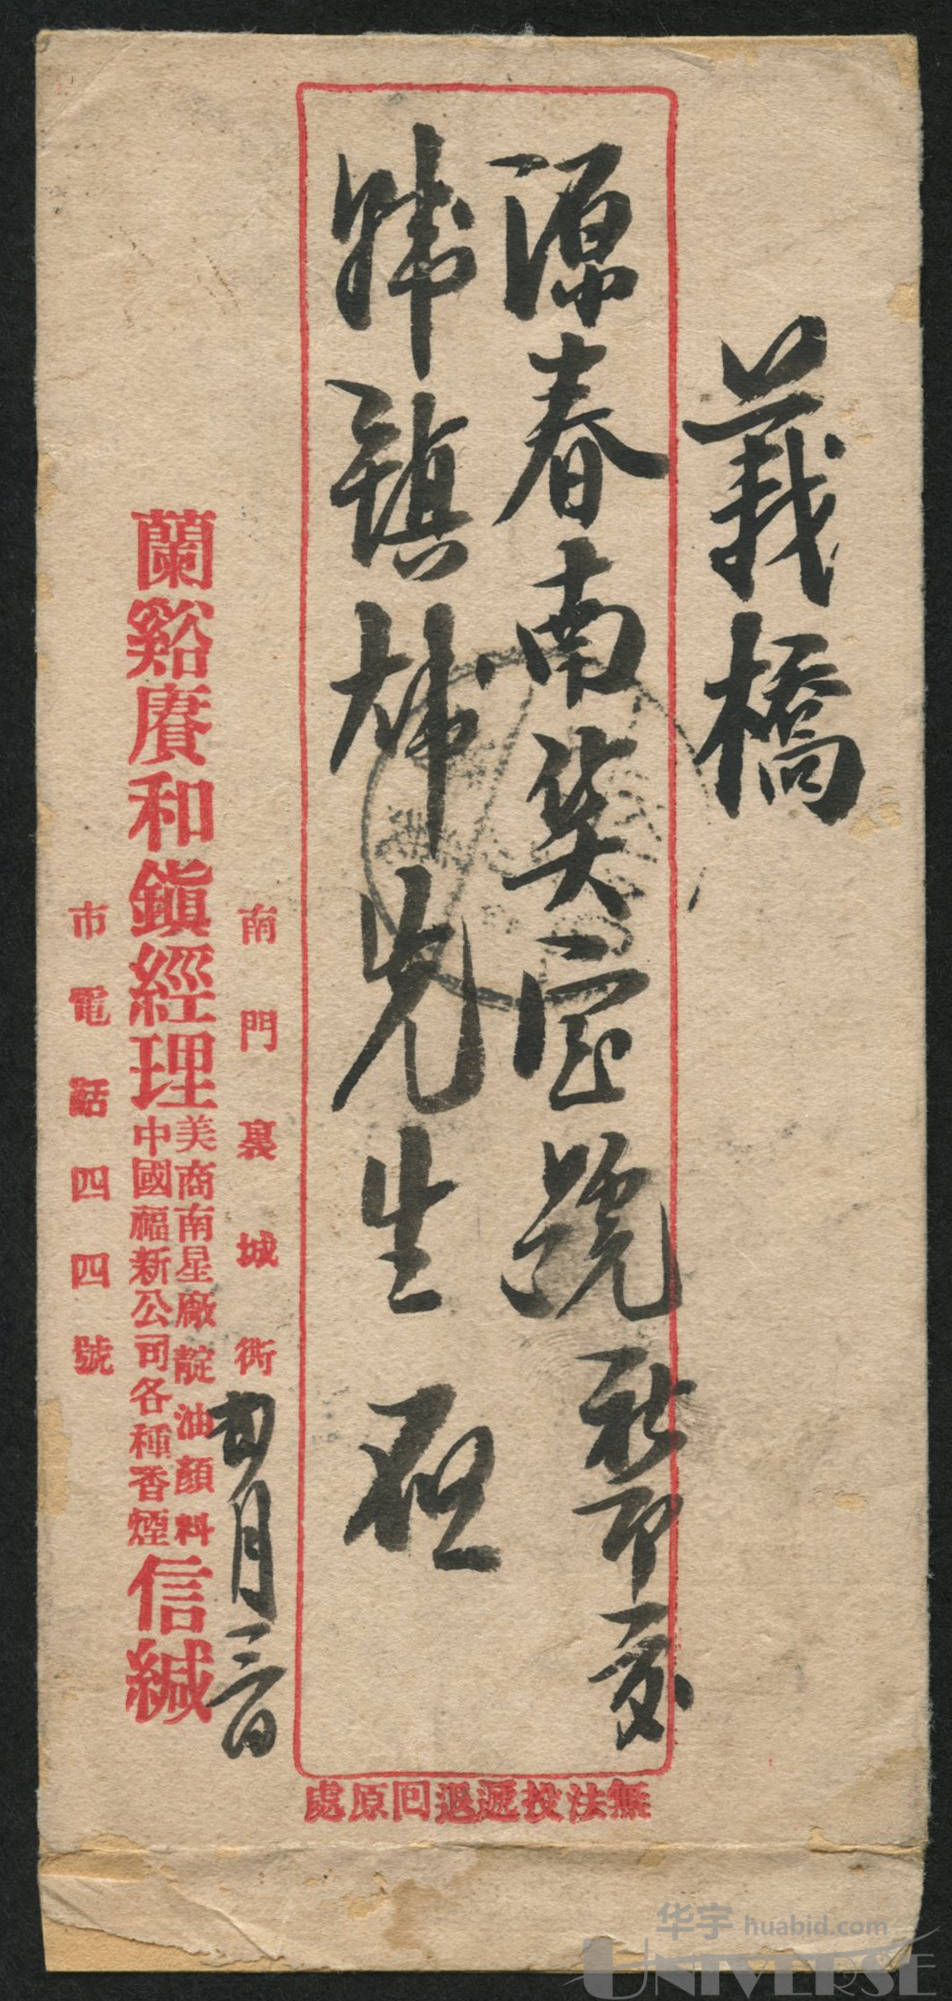 義橋
源春南貨寶號 祈即交
韓鎮林先生 啟
南門裏城衖
四月
蘭谿賡和鎮經理
美商南星廠靛油顏料
中國福新公司各種香煙
信緘
市電話四四號
無法投遞退回原處
华宇 huabid.com
UNIVERSE